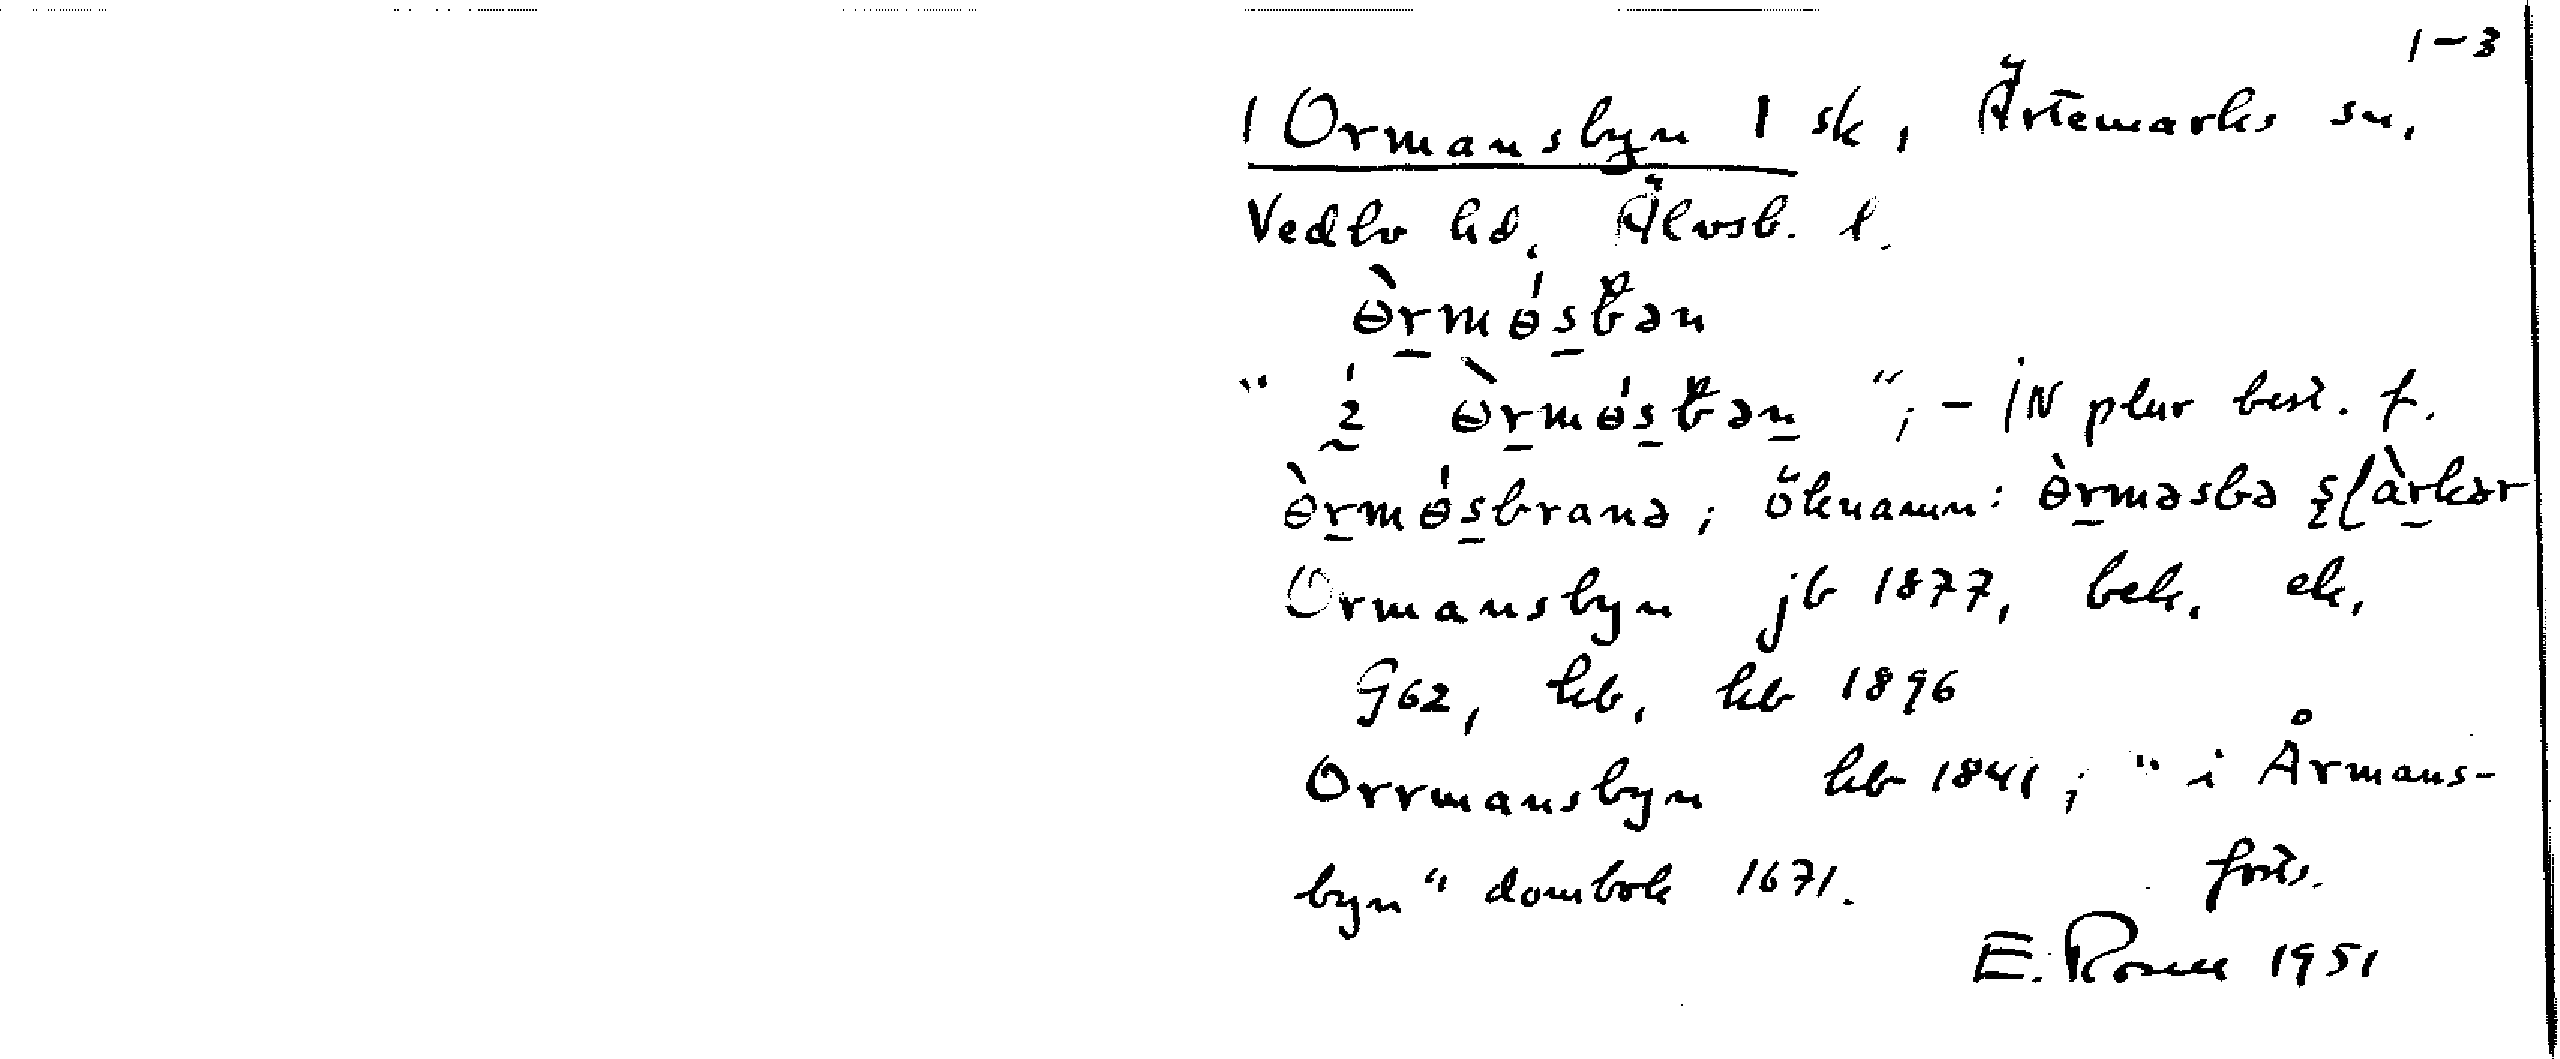 1-3
1 Ormansbyn 1 sk, Ärtemarks sn,
Vedbo hd. Älvsb. l.
ɵ̀rmɵ́sbən
" 2 ɵ̀rmɵ́sbən "; - IN plur best. f.
ɵ̀rmɵ́sbrana; öknamn: ɵ̀rməsbə
Ormansbyn jb 1877, bek. ek,
G62, kb, kb 1896
Orrmansbyn kb 1841; " i Årmans-
byn " dombok 1671. forts.
E. 1951